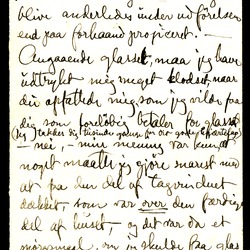 blive anderledes under udførelsen
end paa forhaand projicert!
Angaaende glasset, maa jeg have
udtrykt mig meget klodset, naar
du opfattede mig som jeg vilde paa
dig som foreløbig betaler for glasset
(Jeg takker dig tusinde gange for din gode hjælp)
— nei, — min mening var kun at
noget maatte jeg gjøre snarest med
at faa den del af tagvinduet
dækket som var over den færdige
del af huset, — og det var da et
spørgsmaal, om jeg skulde faa glas